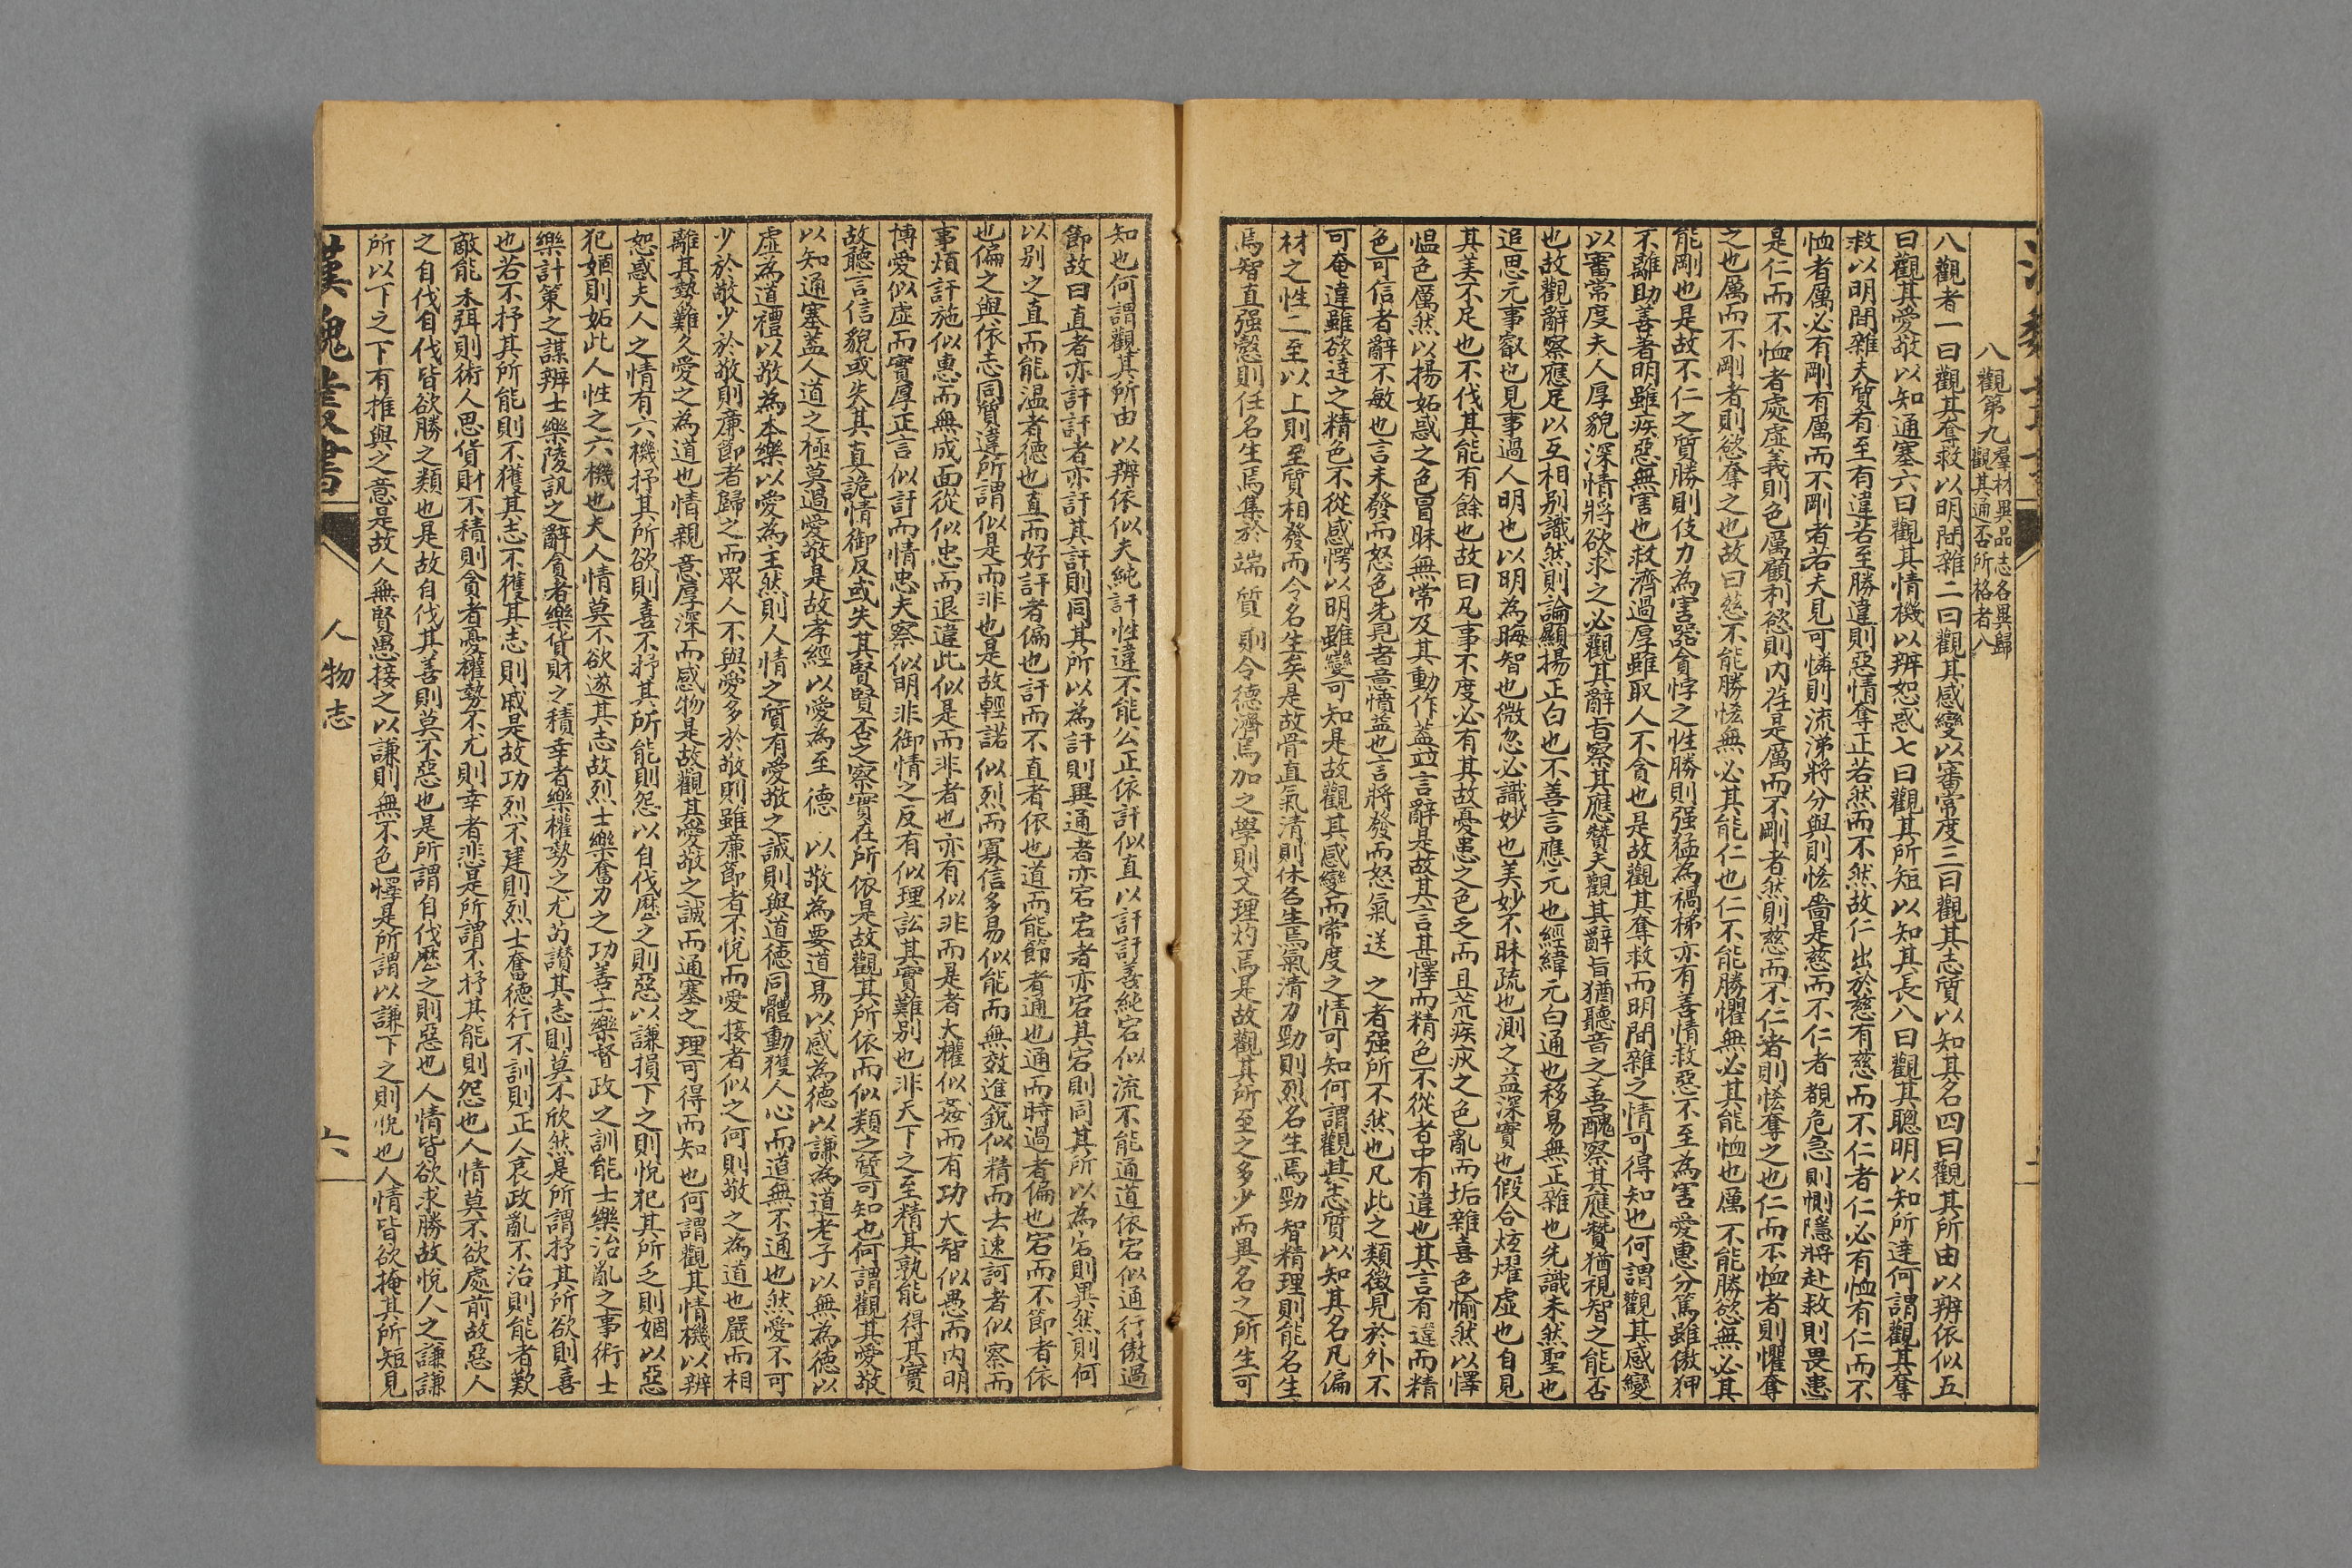 八觀第九羣材異品志各異歸
觀其通否所格者八
八觀者一曰觀其奪救以明間雜二曰觀其感變以審常度三曰觀其志質以知其名四曰觀其所由以辨依似五
曰觀其愛敬以知通塞六曰觀其情機以辨恕惑七曰觀其所短以知其長八曰觀其聰明以知所達何謂觀其奪
救以明間雜夫質有至有違若至勝違則惡情奪正若然而不然故仁出於慈有慈而不仁者仁必有恤有仁而不
恤者厲必有剛有厲而不剛者若夫見可憐則流涕將分與則悋嗇是慈而不仁者覩危急則惻隱將赴救則畏患
是仁而不恤者處虛義則色厲顧利慾則內荏是厲而不剛者然則慈而不仁者則悋奪之也仁而不恤者則懼奪
之也厲而不剛者則慾奪之也故曰慈不能勝悋無必其能仁也仁不能勝懼無必其能恤也厲不能勝慾無必其
能剛也是故不仁之質勝則伎力為害器貪悖之性勝則强猛為禍梯亦有善情救惡不至為害愛惠分篤雖傲狎
不離助善著明雖疾惡無害也救濟過厚雖取人不貪也是故觀其奪救而明間雜之情可得知也何謂觀其感變
以審常度夫人厚貌深情將欲求之必觀其辭旨察其應贊夫觀其辭旨猶聽音之善醜察其應贊猶視智之能否
也故觀辭察應足以互相別識然則論顯揚正白也不善言應元也經緯元白通也移易無正雜也先識未然聖也
追思元事叡也見事過人明也以明為晦智也微忽必識妙也美妙不昧疏也測之益深實也假合炫燿虛也自見
其美不足也不伐其能有餘也故曰凡事不度必有其故憂患之色乏而且荒疾疢之色亂而垢雜喜色愉然以懌
愠色厲然以揚妬惑之色冒昧無常及其動作蓋竝言辭是故其言甚懌而精色不從者中有違也其言有違而精
色可信者辭不敏也言未發而怒色先見者意憤益也言將發而怒氣送 之者强所不然也凡此之類徵見於外不
可奄違雖欲違之精色不從感愕以明雖變可知是故觀其感變而常度之情可知何謂觀其志質以知其名凡偏
材之性二至以上則至質相發而令名生矣是故骨直氣清則休名生焉氣清力勁則烈名生焉勁智精理則能名生
焉智直强愨則任名生焉集於端質則令德濟焉加之學則文理灼焉是故觀其所至之多少而異名之所生可
知也何謂觀其所由以辨依似夫純訐性違不能公正依訐似直以訐訐善純宕似流不能通道依宕似通行傲過
節故曰直者亦訐訐者亦訐其訐則同其所以為訐則異通者亦宕宕者亦宕其宕則同其所以為宕則異然則何
以别之直而能温者德也直而好訐者偏也訐而不直者依也道而能節者通也通而時過者偏也宕而不節者依
也偏之與依志同質違所謂似是而非也是故輕諾似烈而寡信多易似能而無效進銳似精而去速訶者似察而
事煩訐施似惠而無成面從似忠而退違此似是而非者也亦有似非而是者大權似姦而有功大智似愚而內明
博愛似虛而實厚正言似訐而情忠夫察似明非御情之反有似理訟其實難别也非天下之至精其孰能得其實
故聽言信貌或失其真詭情御反或失其賢賢否之察實在所依是故觀其所依而似類之質可知也何謂觀其愛敬
以知通塞蓋人道之極莫過愛敬是故孝經以愛為至德 以敬為要道易以感為德以謙為道老子以無為德以
虛為道禮以敬為本樂以愛為主然則人情之質有愛敬之誠則與道德同體動獲人心而道無不通也然愛不可
少於敬少於敬則廉節者歸之而眾人不與愛多於敬則雖廉節者不悅而愛接者似之何則敬之為道也嚴而相
離其勢難久愛之為道也情親意厚深而感物是故觀其愛敬之誠而通塞之理可得而知也何謂觀其情機以辨
恕惑夫人之情有六機抒其所欲則喜不抒其所能則怨以自伐歷之則惡以謙損下之則悅犯其所乏則婟以惡
犯婟則妬此人性之六機也夫人情莫不欲遂其志故烈士樂奮力之功善士樂督政之訓能士樂治亂之事術士
樂計策之謀辨士樂陵訊之辭貪者樂貨財之積幸者樂權勢之尤苟讚其志則莫不欣然是所謂抒其所欲則喜
也若不抒其所能則不獲其志不獲其志則戚是故功烈不建則烈士奮德行不訓則正人哀政亂不治則能者歎
敵能未弭則術人思貨財不積則貪者憂權勢不尤則幸者悲是所謂不抒其能則怨也人情莫不欲處前故惡人
之自伐自伐皆欲勝之類也是故自伐其善則莫不惡也是所謂自伐歷之則惡也人情皆欲求勝故悅人之謙謙
所以下之下有推與之意是故人無賢愚接之以謙則無不色懌是所謂以謙下之則悅也人情皆欲掩其所短見
漢魏叢書 人物志 六